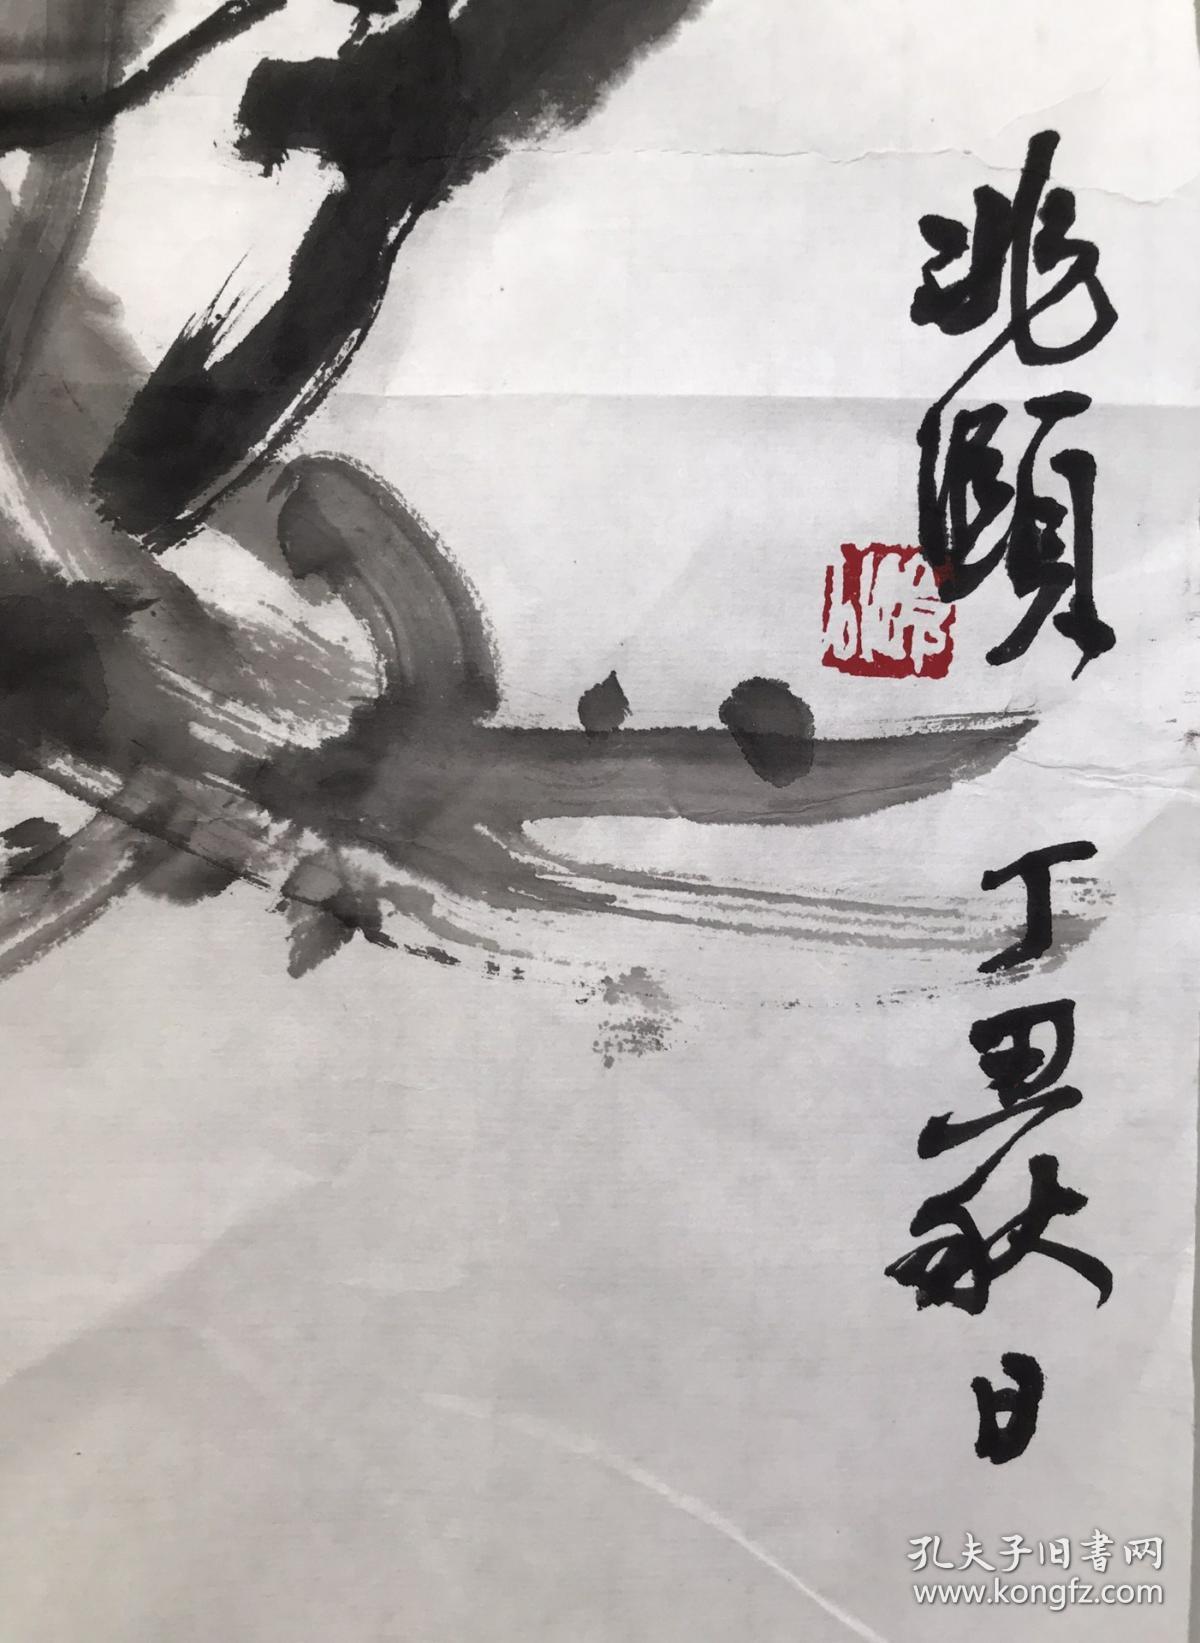 兆頤
丁丑秋日
孔夫子旧書网
www.kongfz.com